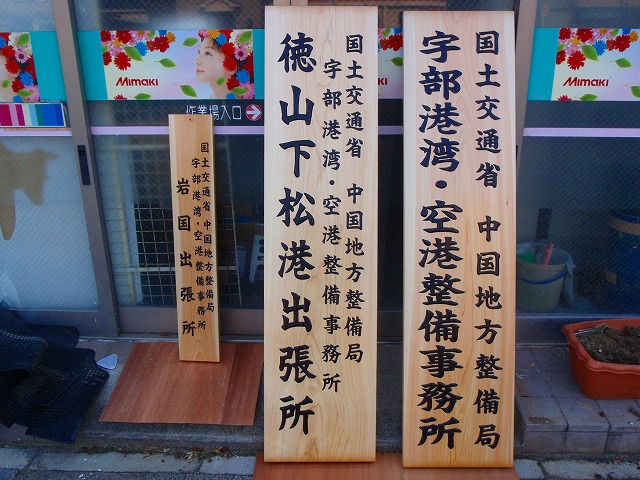 国土交通省 中国地方整備局
宇部港湾・空港整備事務所
国土交通省 中国地方整備局
宇部港湾・空港整備事務所
徳山下松港出張所
国土交通省 中国地方整備局
宇部港湾・空港整備事務所
岩国出張所
Mimaki
Mimaki
作業場入口